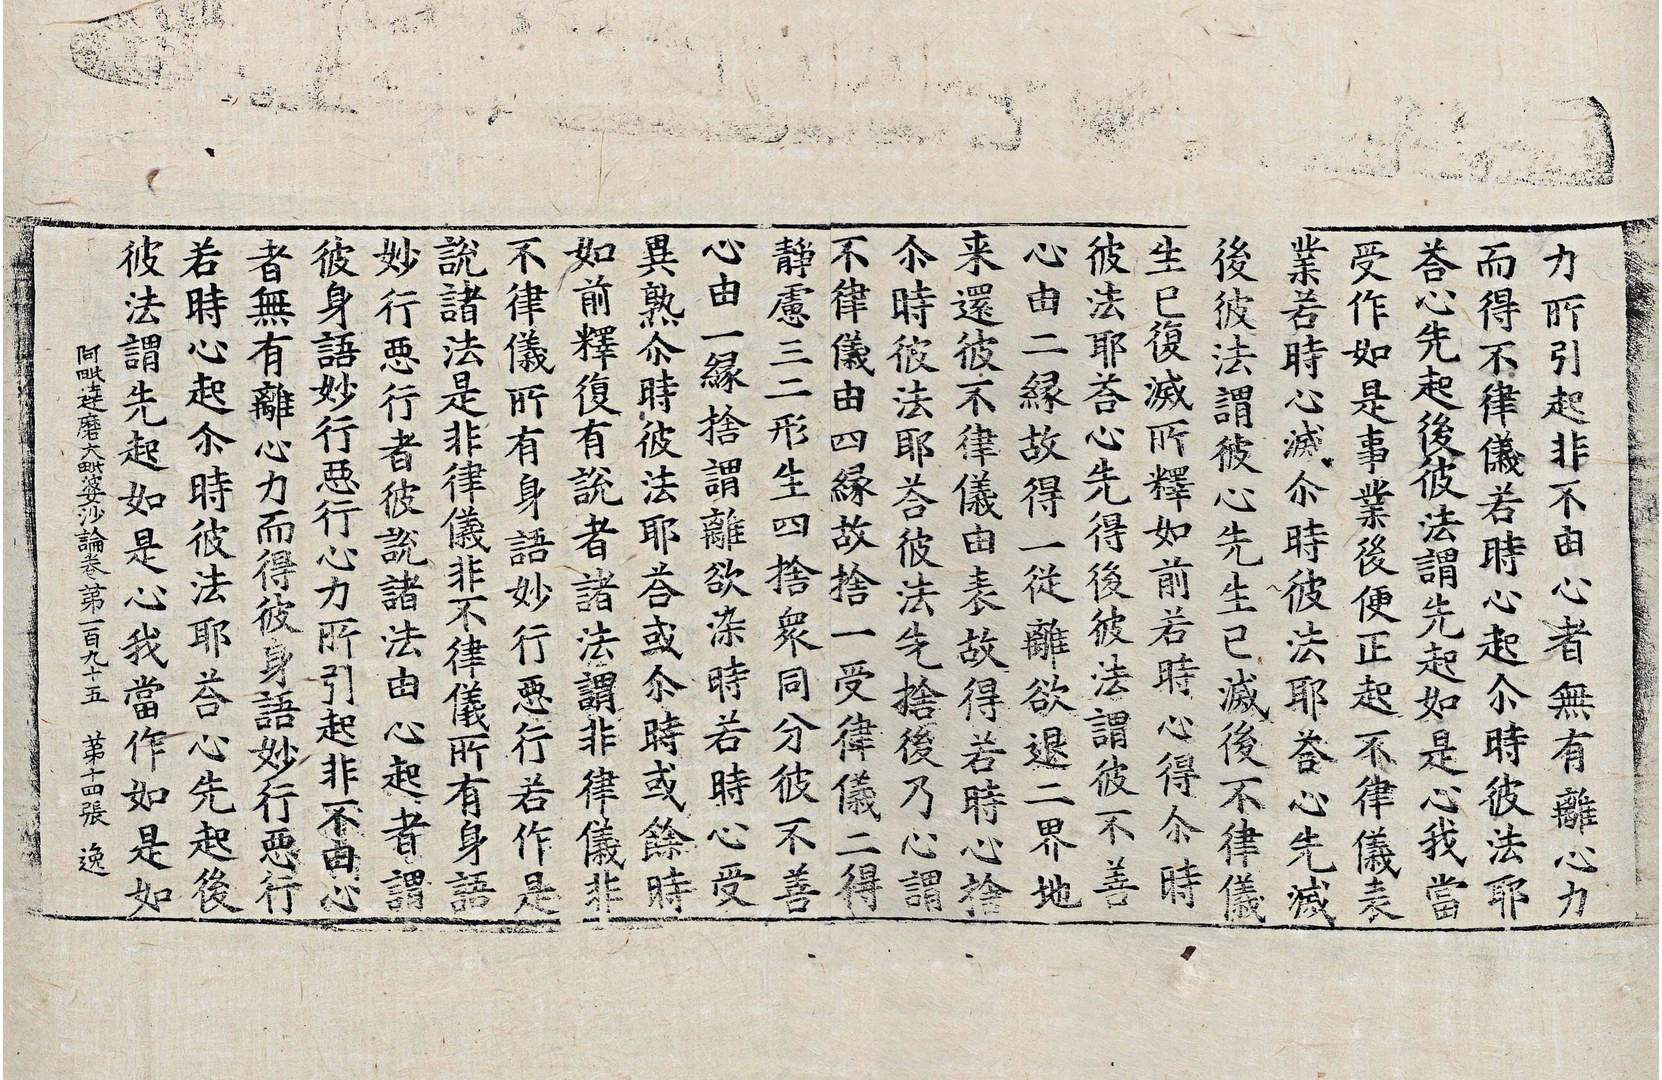 力所引起非不由心者無有離心力
而得不律儀若時心起尒時彼法耶
荅心先起後彼法謂先起如是心我當
受作如是事業後便正起不律儀表
業若時心滅尒時彼法耶荅心先滅
後彼法謂彼心先生已滅後不律儀
生已復滅所釋如前若時心得尒時
彼法耶荅心先得後彼法謂彼不善
心由二縁故得一從離欲退二界地
来還彼不律儀由表故得若時心捨
尒時彼法耶荅彼法先捨後乃心謂
不律儀由四縁故捨一受律儀二得
靜慮三二形生四捨衆同分彼不善
心由一縁捨謂離欲染時若時心受
異熟尒時彼法耶荅或尒時或餘時
如前釋復有說者諸法謂非律儀非
不律儀所有身語妙行惡行若作是
說諸法是非律儀非不律儀所有身語
妙行惡行者彼說諸法由心起者謂
彼身語妙行惡行心力所引起非不由心
者無有離心力而得彼身語妙行惡行
若時心起尒時彼法耶荅心先起後
彼法謂先起如是心我當作如是如
阿毗達磨大毗婆沙論卷第一百九十五 第十四張 逸